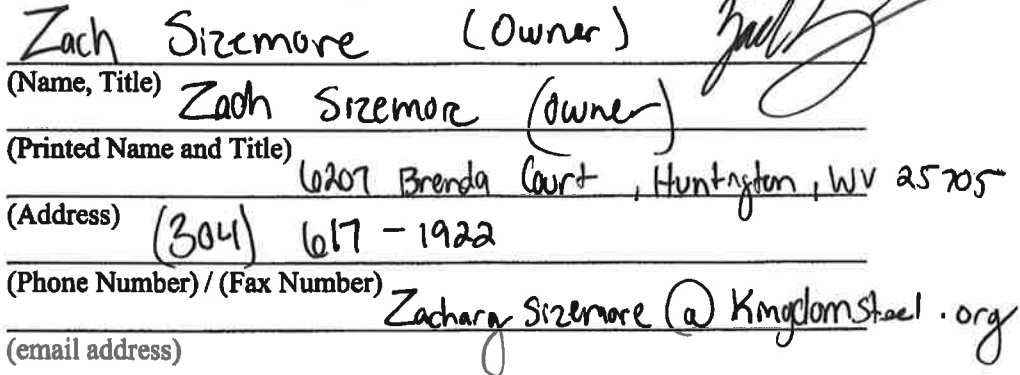 Zach Sizemore (Owner)
(Name, Title)
Zach Sizemore (Owner)
(Printed Name and Title)
6207 Brenda Court, Huntington, WV 25705
(Address)
(304) 617-1922
(Phone Number) / (Fax Number)
Zachary Sizemore @ Kingdomsteel.org
(email address)